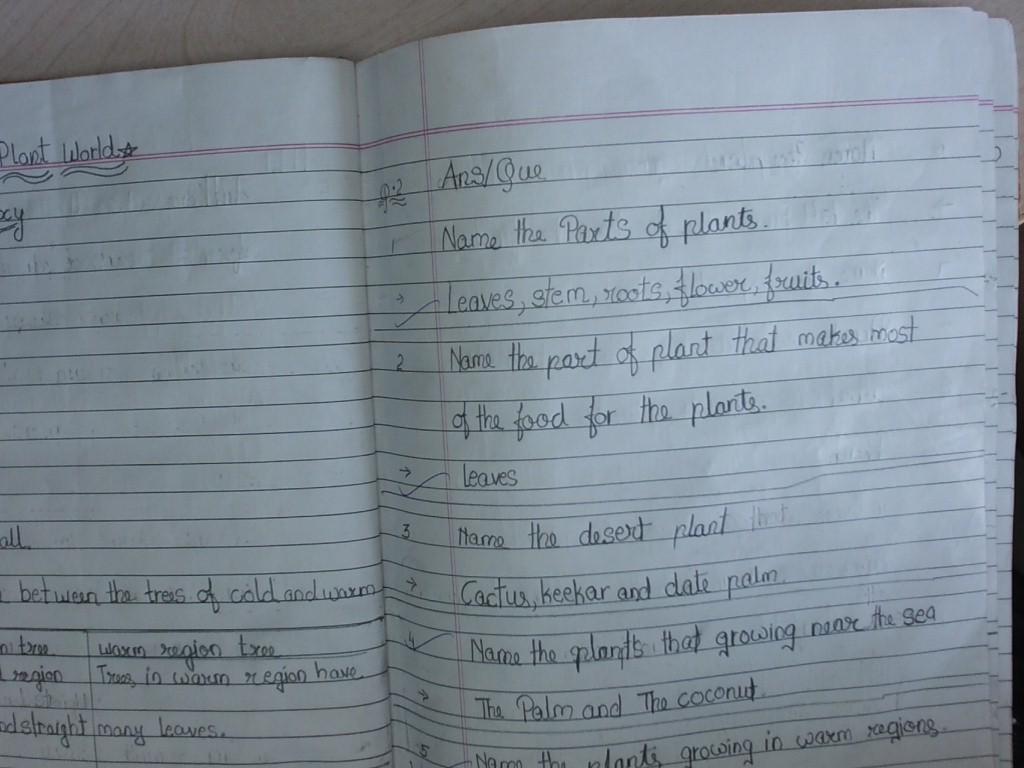 Plant World
all.
between the trees of cold and warm
tree warm region tree
region Trees in warm region have
straight many leaves.
Q:2 Ans/Que
1 Name the Parts of plants.
→ Leaves, stem, roots, flower, fruits.
2 Name the part of plant that makes most
of the food for the plants.
→ leaves
3 Name the desert plant that
→ Cactus, keekar and date palm.
4 Name the plants that growing near the sea
→ The Palm and The coconut.
5 Name the plants growing in warm regions.